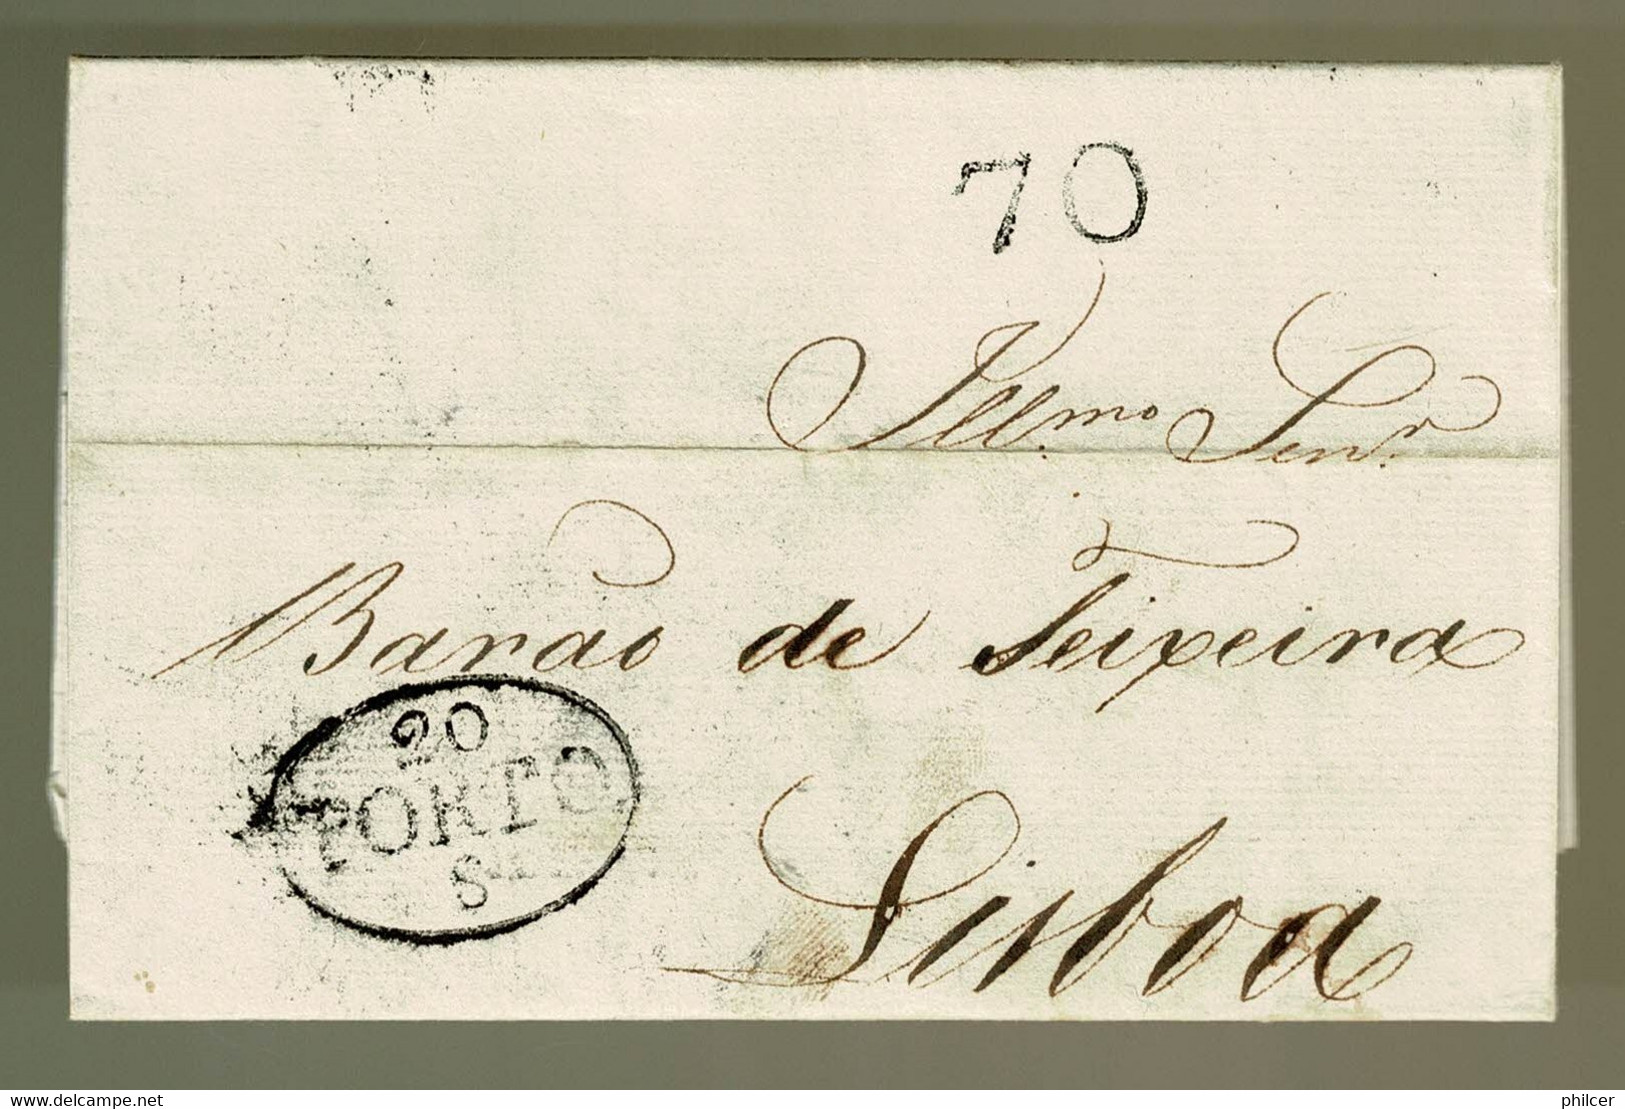 70
Illmo. Senr.
Barão de Teixeira
20
PORTO
S
Lisboa
delcampe.net
philcer